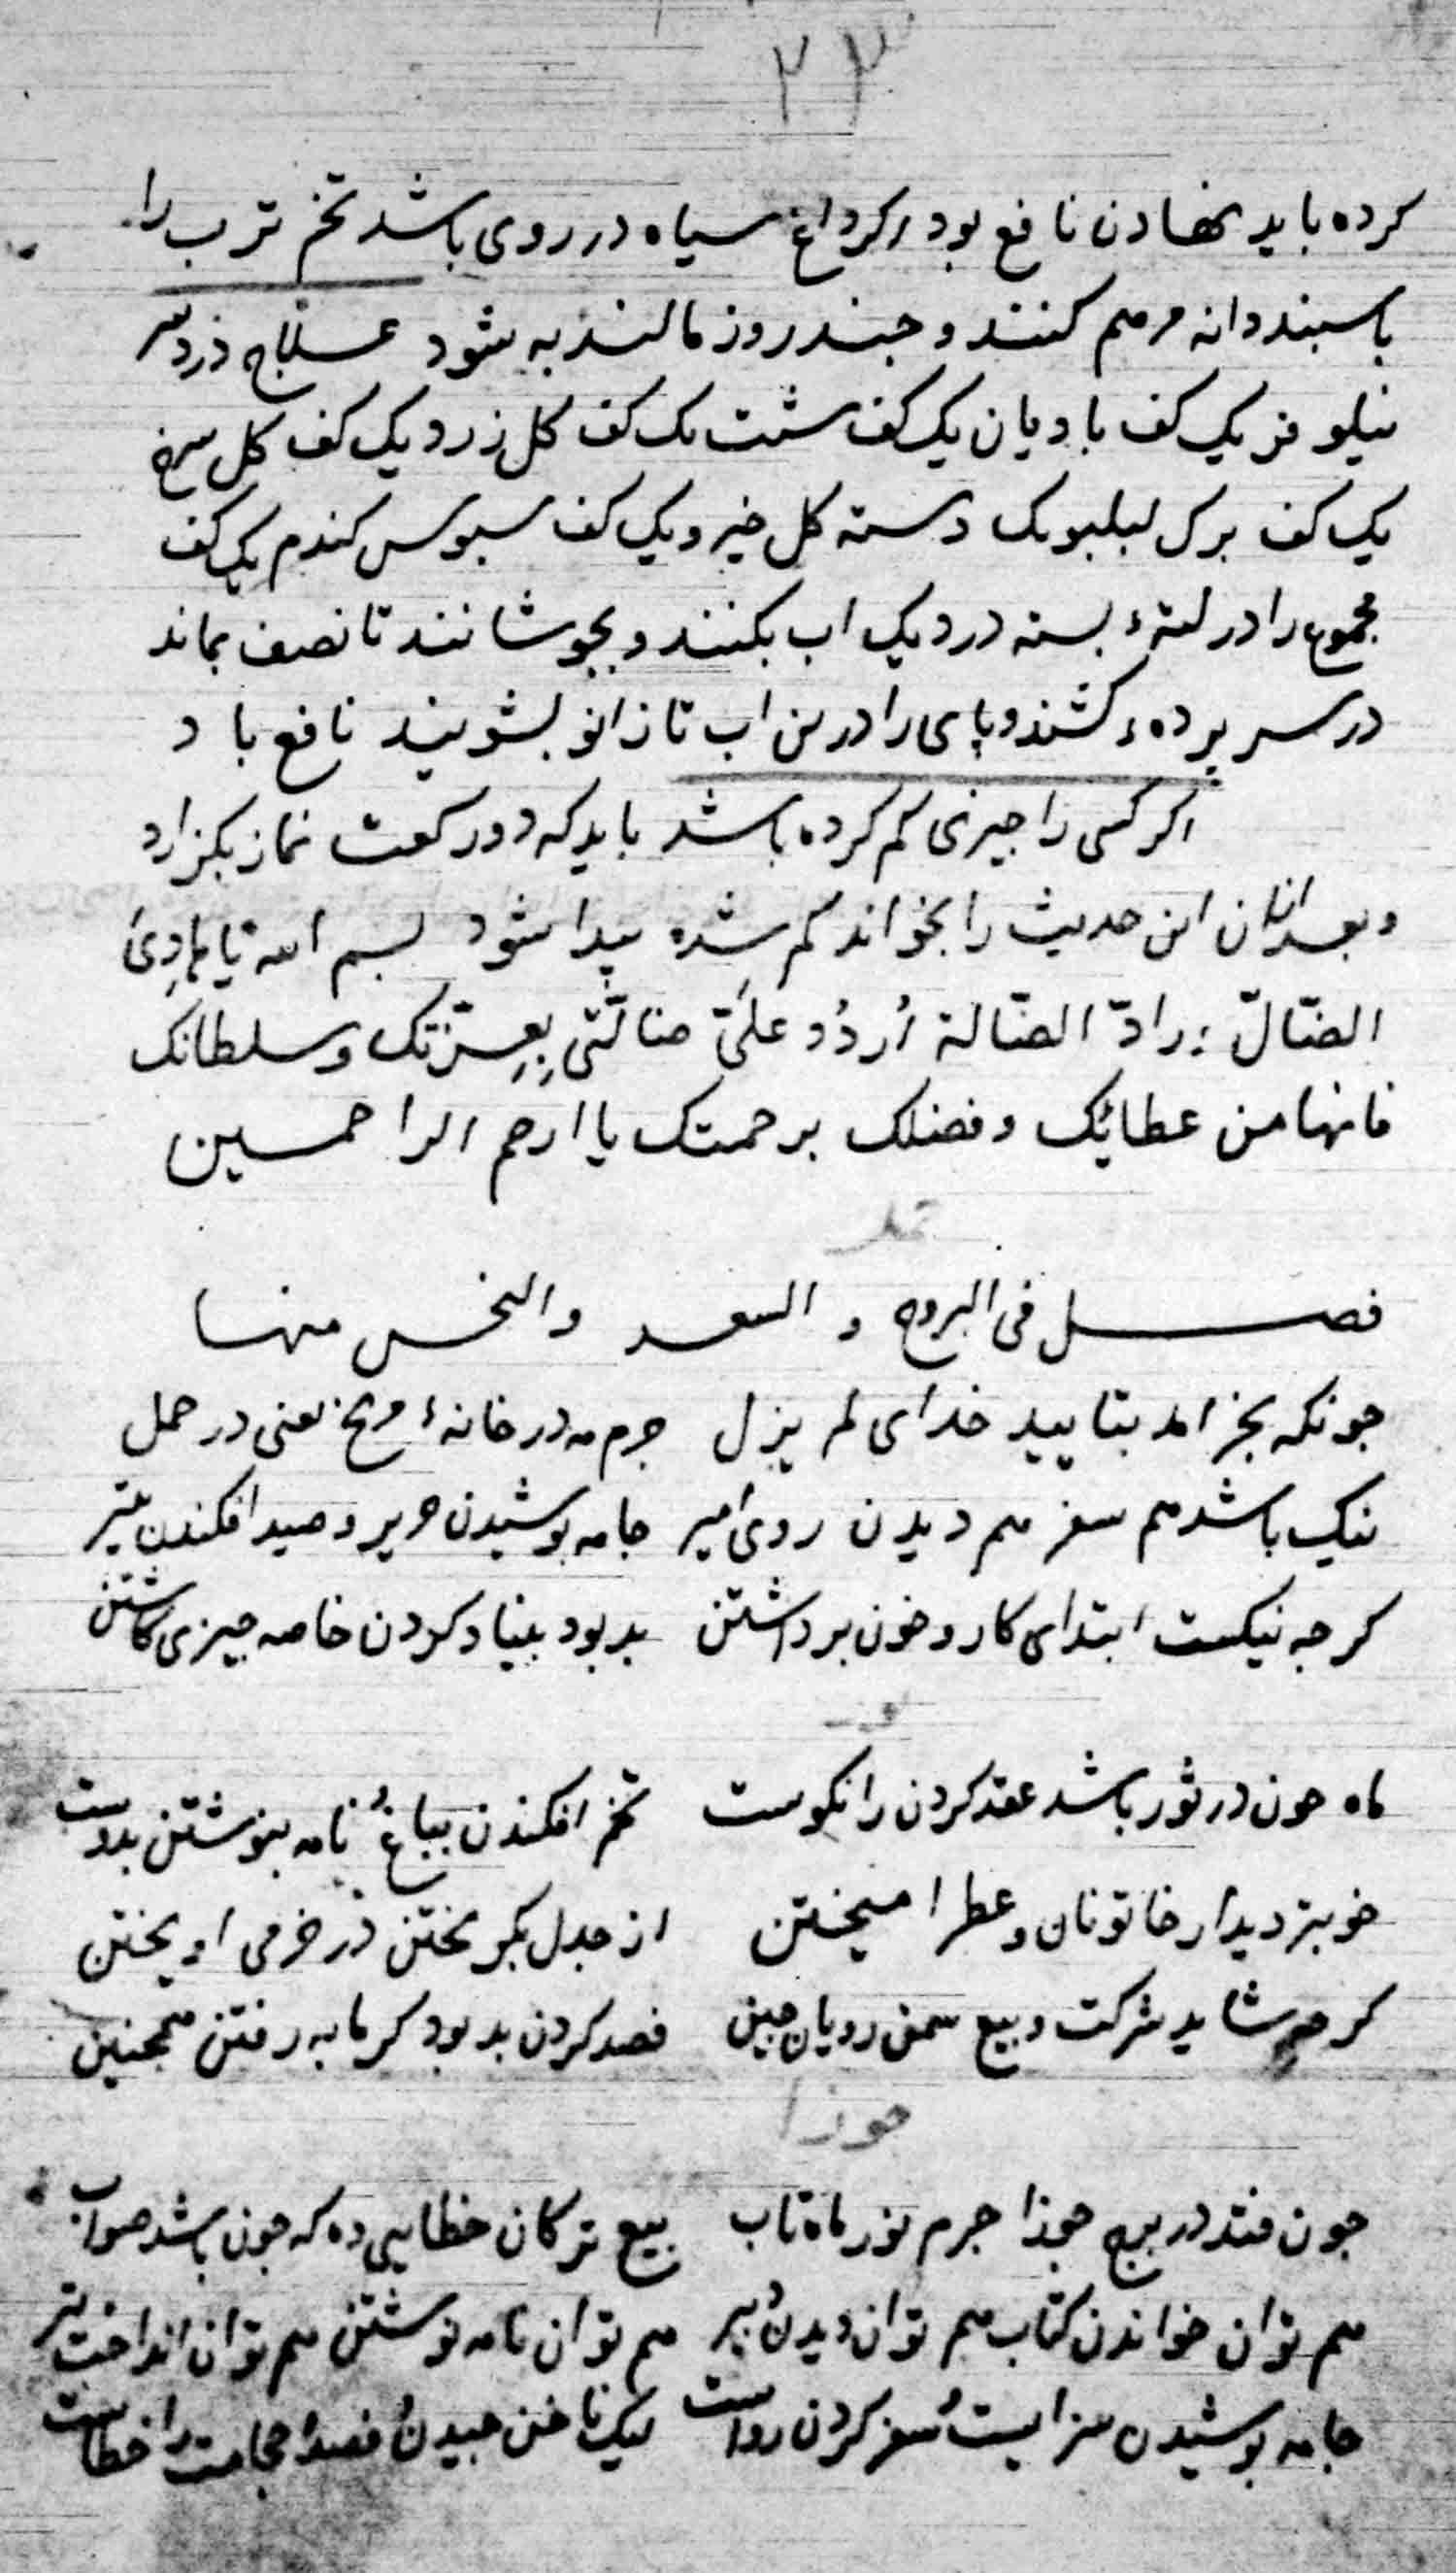 ۲۳
کرده باید نهادن نافع بود اکر داغ سیاه در روی باشد تخم ترب را
با سبنددانه مرهم کنند و جند روز مالند به شود علاج درد سر
نیلوفر یک کف بادیان یک کف شبت یک کف کل زرد یک کف کل سرخ
یک کف برک لبلبو یک دسته کل خیرو یک کف سبوس کندم یک کف
مجموع را در لتهٔ بسته در دیک اب بکنند و بجوشانند تا نصف بماند
در سر پردهٔ کشند و پای را درین اب تا زانو بشویند نافع باد
اکر کسی را جیزی کم کرده باشد باید که دو رکعت نماز بکزارد
و بعد ازان این حدیث را بخواند کم شده پیدا شود بسم الله یا هادِیَ
الضّالّ و رادّ الضّالة اُردُد علیّ ضالّتی بِعِزّتک و سلطانک
فانها من عطایٔک و فضلک برحمتک یا ارحم الراحمین
حمل
فصل فی البروج و السعد والنحس منها
جونکه بخرامد بتایید خدای لم یزل جرم مه در خانهٔ مریخ یعنی در حمل
نیک باشد هم سفر هم دیدن روی امیر جامه پوشیدن حریر و صید افکندن بتیر
کرجه نیکست ابتدای کار و خون برداشتن بد بود بنیاد کردن خاصه جیزی کاشتن
ثور
ماه جون در ثور باشد عقد کردن را نکوست تخم افکندن بباغ و نامه بنوشتن بدوست
خوبتر دیدار خاتونان و عطر امیختن از جدل بکریختن در خرمی اویختن
کرجه شاید شرکت و بیع سمن رویان جین فصد کردن بد بود کرمابه رفتن همجنین
جوزا
جون فتد در برج جوزا جرم نور ماه تاب بیع ترکان خطایی ده که جون باشد صواب
هم توان خواندن کتاب هم توان دیدن دبیر هم توان نامه نوشتن هم توان انداخت تیر
جامه پوشیدن سزایست و سفر کردن رواست لیک ناخن جیدن و فصد و حجامت را خطاست